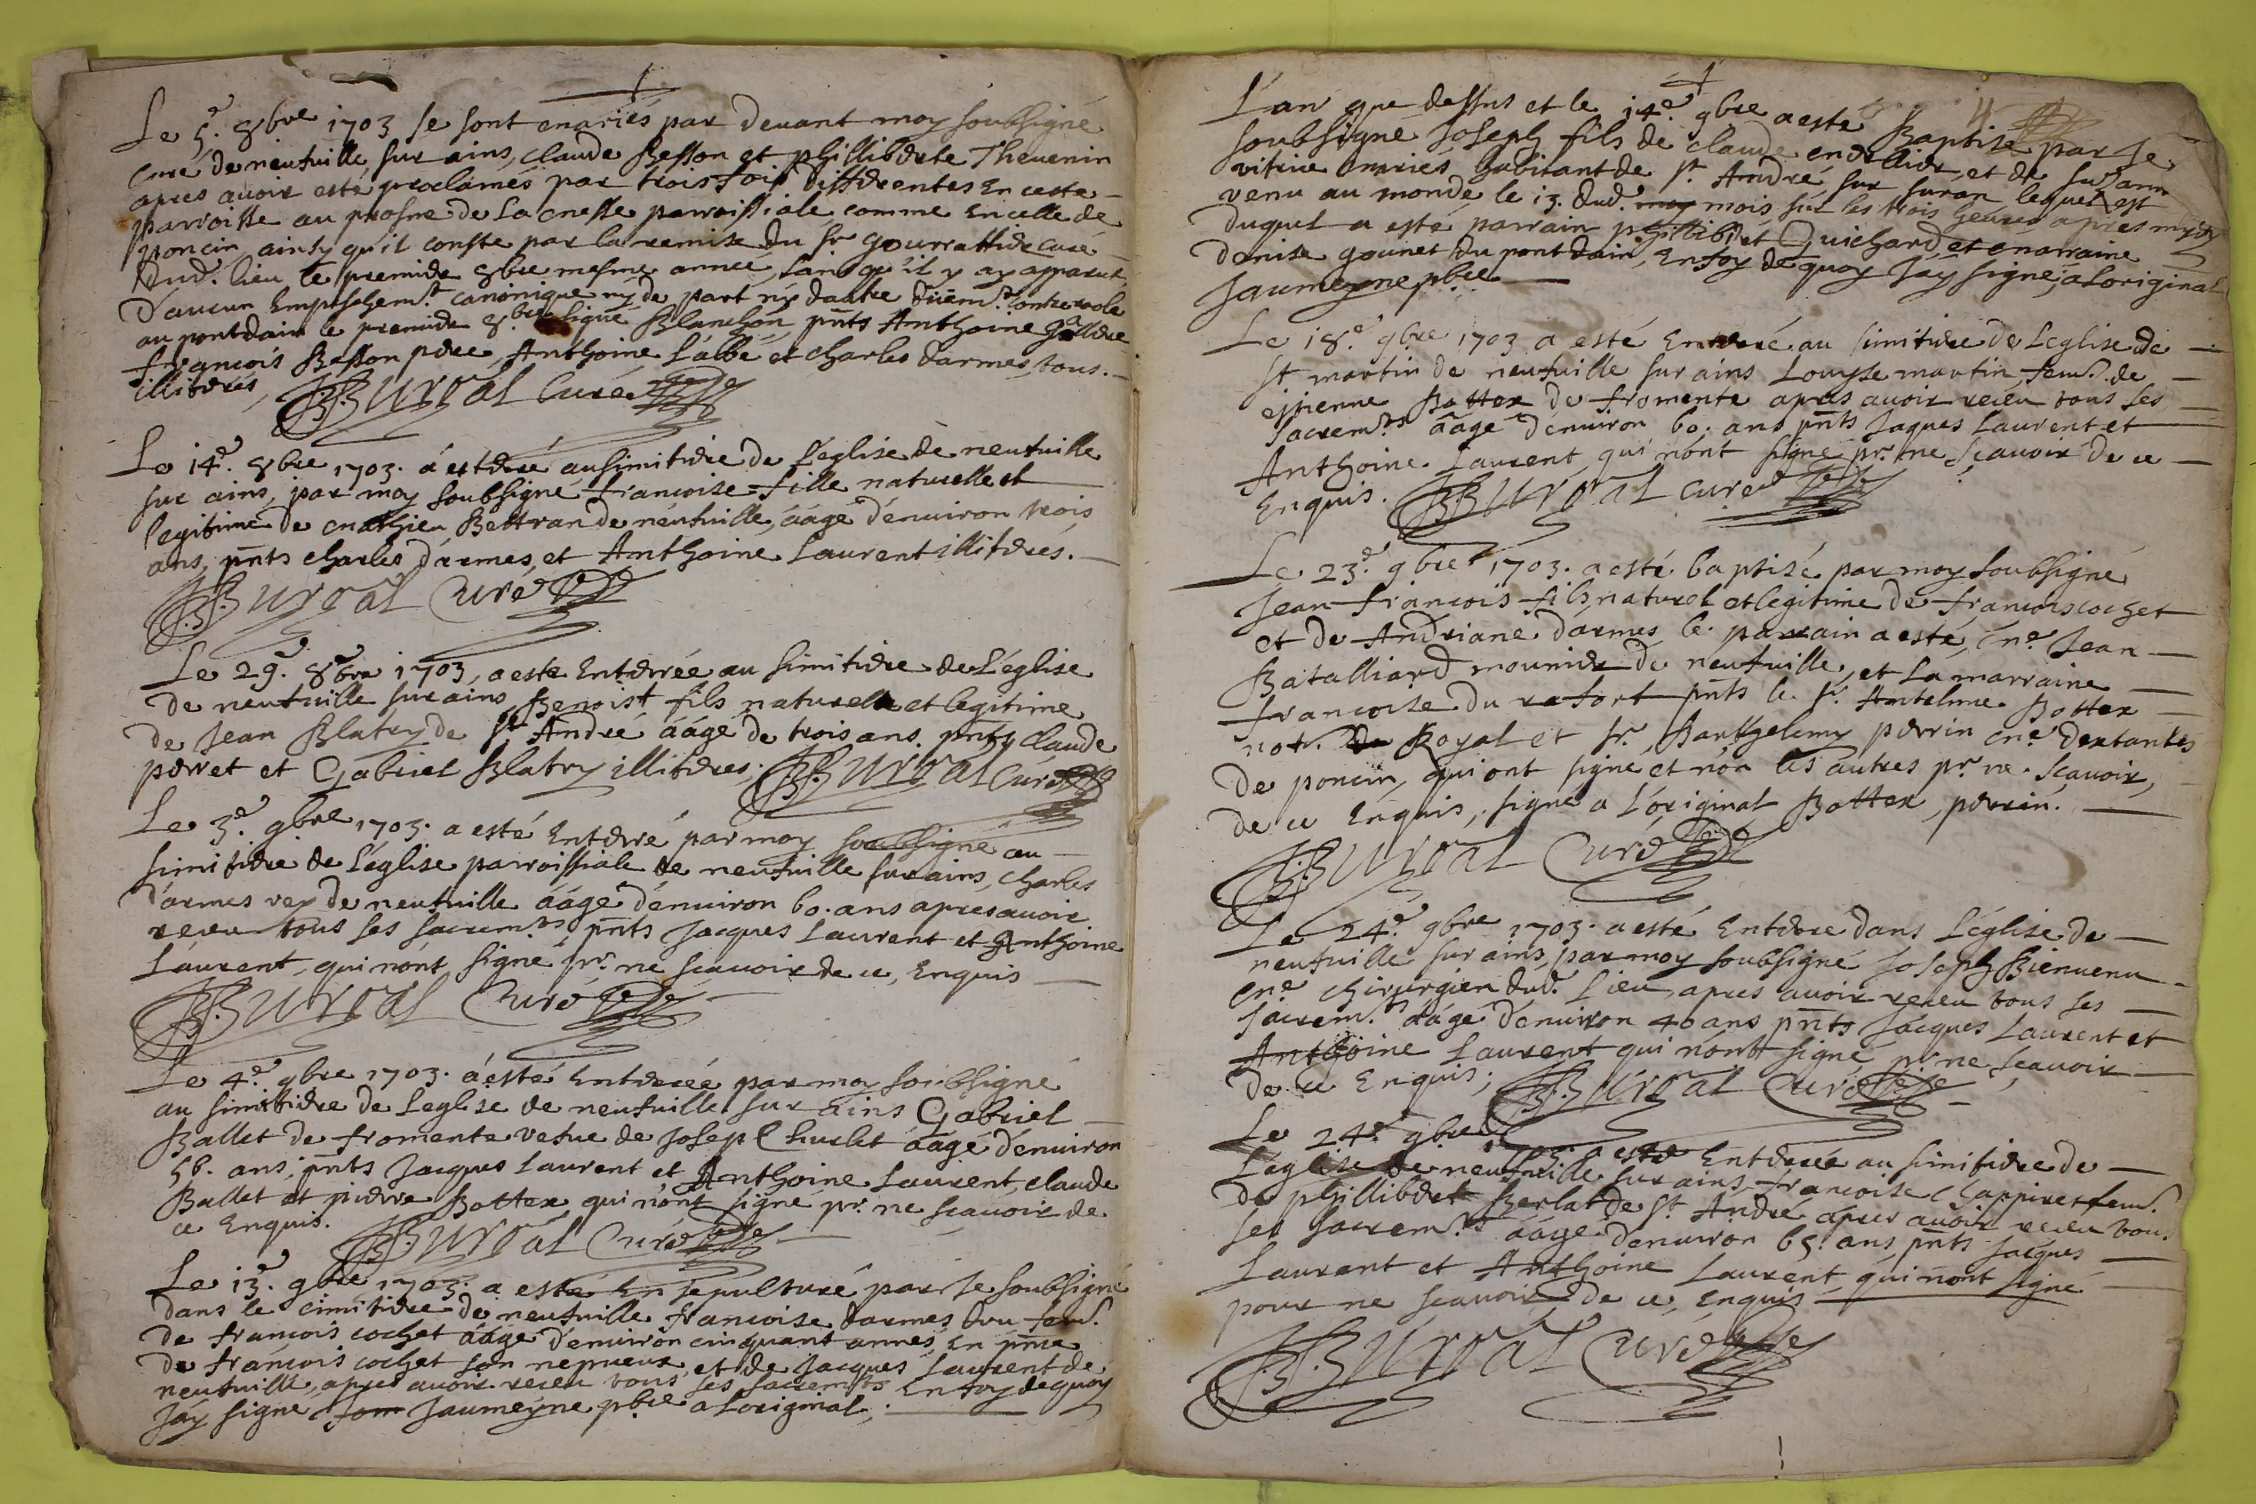 Le 5.e 8bre 1703 se sont mariés par devant moy soubsigné
curé de neufuille sur ains, claude Besson et phillibérte Theuenin
apres auoir esté proclamés par trois fois differentes En ceste
parroisse au prosne de La messe parroissiale comme En celle de
poncin ainsy qu'il conste par la remise du sr gourrattier curé
dud. lieu le premier 8bre mesme année, sans qu'il y ay apparut
d'aucun Empeschem.t canonique ny de part ny dautre
au pontdain le premier 8.bre signé Blanchon, pnts Anthoine
francois Besson pere, Anthoine L'abbé et charles darmes, tous
illiterés, Burcal Curé
Le 14.e 8bre 1703. a esteré au simitiere de L'eglise de neufuille
sur ains, par moy soubsigné francoise fille naturelle et
legitime de mathieu Bertran de neufuille, áágé d'enuiron trois
ans, pnts charles d'armes, et Anthoine Laurent illiterés.
Burcal Curé
Le 29.e 8bre 1703, a esté Enterrée au simitiere de L'église
de neufuille sur ains, Benoist fils naturel et legitime
de Jean Blatry de st André áágé de trois ans. pnts, claude
perret et Gabriel Blatry illiteres; Burcal Curé
Le 3.e 9bre 1703. a esté Enterré par moy soubsigné au
simitiere de L'église parroissiale de neufuille sur ains, charles
d'armes rey de neufuille áágé d'enuiron 60. ans apres auoir
receu tous ses sacrem.ts pnts Jacques Laurent et Anthoine
Laurent, qui n'ont signé pr. ne scauoir de ce, Enquis
Burcal Curé
Le 4.e 9bre 1703. á esté Enterrée par moy soubsigné
au simitiere de Leglise de neufuille sur ains Gabriel
Ballet de fromente vefue de Joseph hurlet áágé d'enuiron
56. ans; pnts Jacques Laurent et Anthoine Laurent, claude
Ballet et pierre Bottex qui n'ont signé pr. ne scauoir de
ce Enquis. Burcal Curé
Le 13.e 9bre 1703. a esté En sepulturé par Je soubsigné
dans le cimitiere de neufuille francoise darmes fem.
de francois cochet áágé d'enuiron cinquant annés, En pnce
de francois cochet son nepueux et de Jacques Laurent de
neufuille, apres auoir receu tous ses sacremts En foy de quoy
J'ay signé Jaumeyne pbre a Loriginal;
L'an que dessus et le 14.e 9bre a esté Baptisé par Je
soubsigné Joseph fils de claude et de suzann
vitrix mariés habitant de st André sur suran lequel est
venu au monde le 13. dud. mois sur les trois heures apres midy
duquel a esté parrain phillibért Guichard et marraine
denise gounet du pontdain, En foy de quoy J'ay signé, a Loriginal
Jaumeyne pbre
Le 18.e 9bre 1703 a esté Enterré au simitiere de L'eglise de
st martin de neufuille sur ains Louyse martin fem. de
etienne Bottex de fromente apres auoir receu tous ses
sacrem.ts áágé d'enuiron 60. ans pnts Jaques Laurent et
Anthoine. Laurent qui n'ont signé pr. ne scauoir de ce
Enquis. Burcal curé
Le 23.e 9bre 1703. a esté baptisé par moy soubsigné
Jean francois fils naturel et legitime de francois cochet
et de Andriane darmes, le parrain a esté, me Jean
Batalliard mounier de neufuille, et La marraine
francoise du rafort pnts le sr Antelme Bottex
not. Royal et sr. Barthelemy perrin me
de poncin, qui ont signé et non les autres pr ne scauoir,
de ce Enquis, signé a L'original Bottex, perrin.
Burcal Curé
Le 24.e 9bre 1703. a esté Enterré dans L'église de
neufuille sur ains, par moy soubsigné Joseph Bienuenu
me chirurgien dud. Lieu, apres auoir receu tous ses
sacrem.ts áágé d'enuiron 40 ans pnts Jacques Laurent et
Anthoine Laurent qui n'ont signé pr ne scauoir
de ce Enquis; Burcal Curé
Le 24.e 9bre esté Enterrée au simitiere de
L'église de neufuille sur ains, francoise chappires fem.
de phillibért Berlat de st André apres auoir receu tous
ses sacrem.ts áágé d'enuiron 65. ans, pnts Jacques
Laurent et Anthoine Laurent, qui n'ont signé
pour ne scauoir de ce, Enquis
Burcal Curé